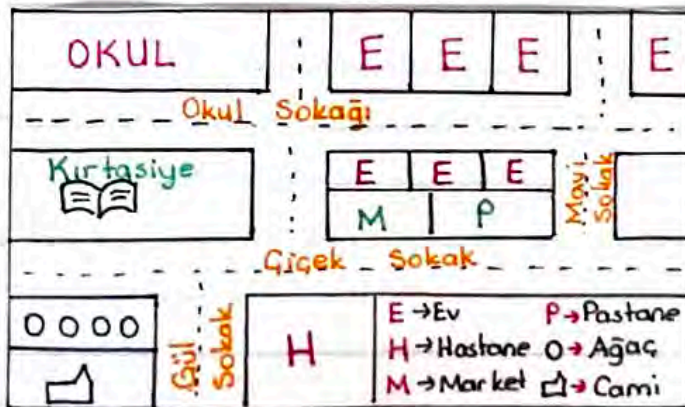 OKUL E E E E
Okul Sokağı
Kırtasiye E E E
M P
Mavi Sokak
Çiçek Sokak
O O O O
Gül Sokak
H
E → Ev P → Pastane
H → Hastane O → Ağaç
M → Market → Cami